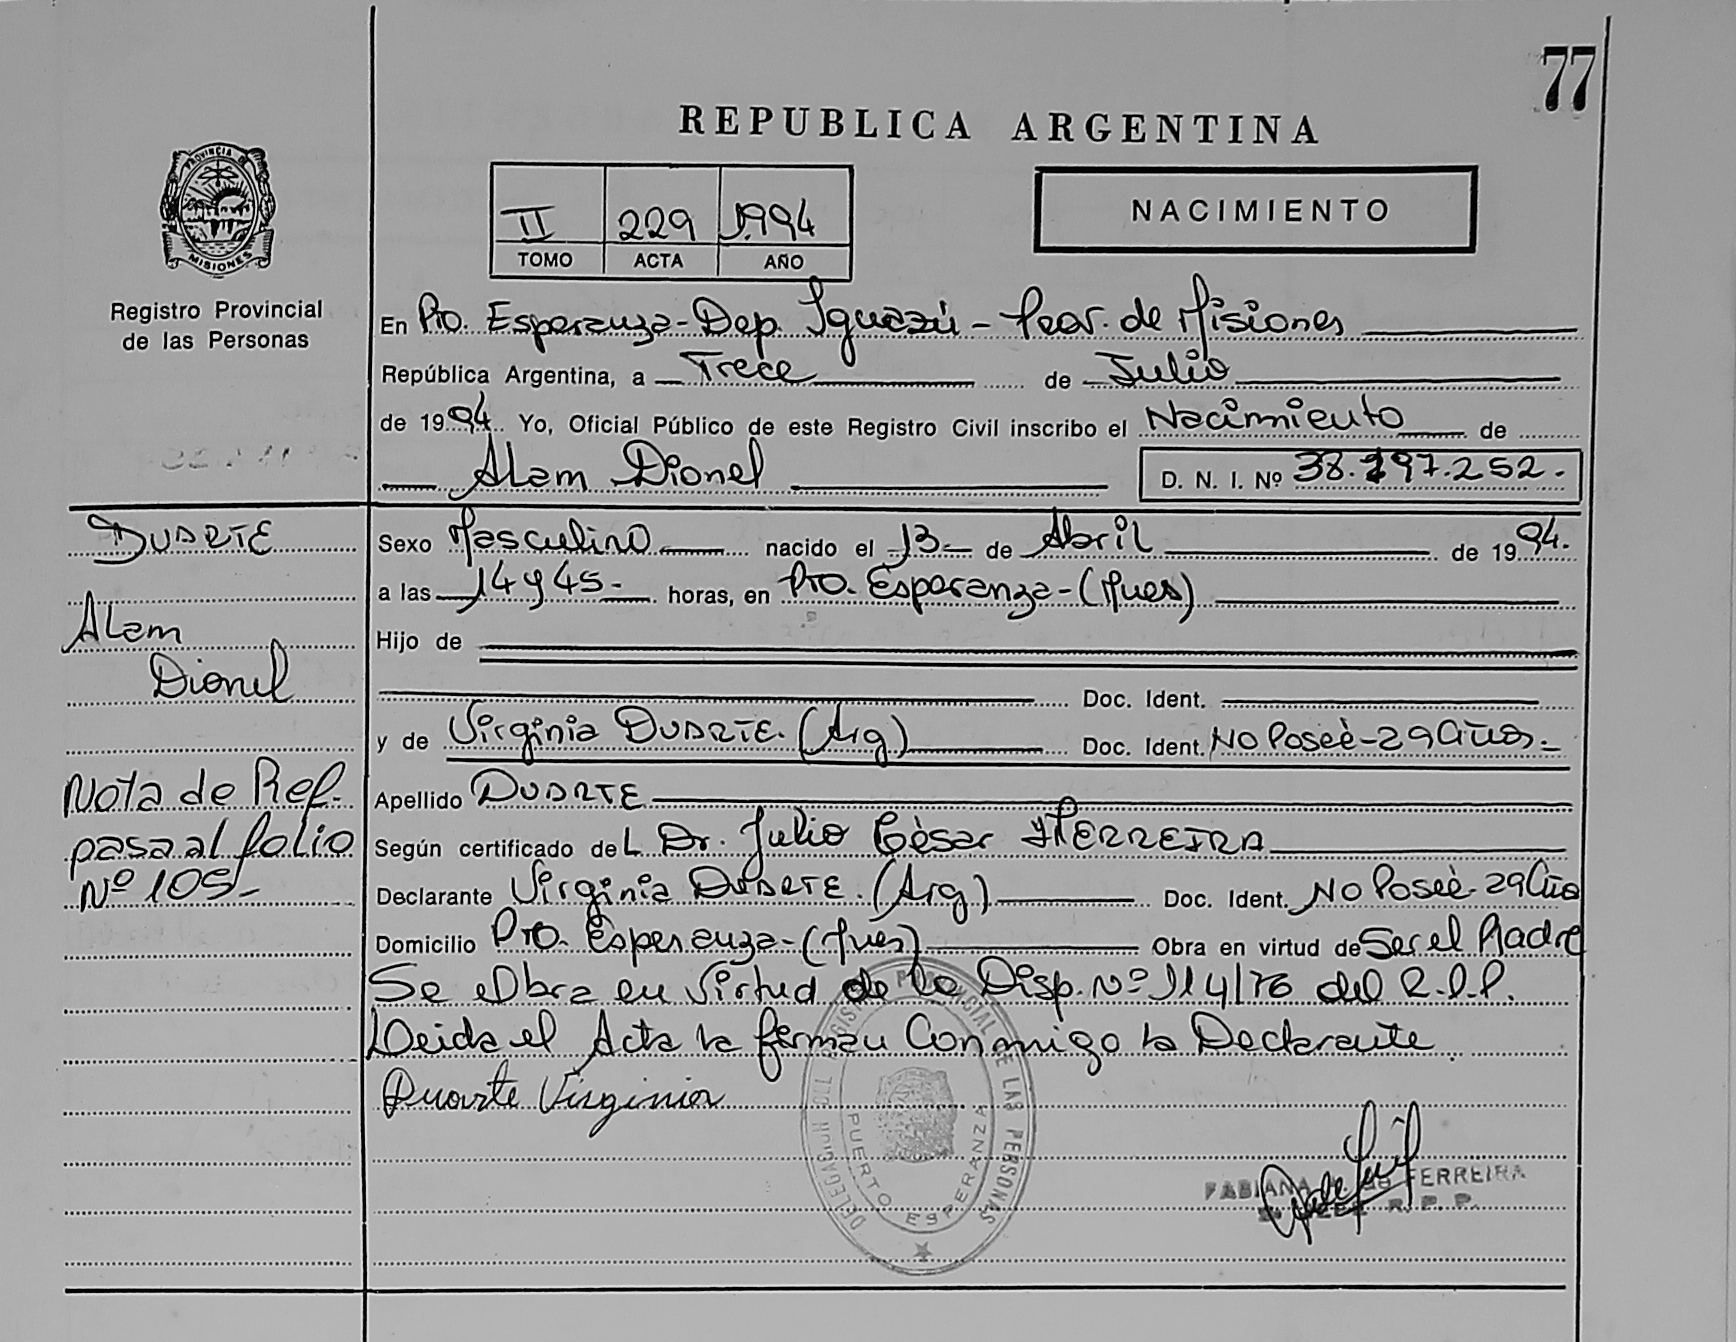 77
REPUBLICA ARGENTINA
PROVINCIA DE
MISIONES
Registro Provincial
de las Personas
II 229 1994
TOMO ACTA AÑO
NACIMIENTO
En Pto. Esperanza - Dep. Iguazú - Prov. de Misiones
República Argentina, a Trece de Julio
de 1994. Yo, Oficial Público de este Registro Civil inscribo el Nacimiento de
Alam Dionel D. N. I. Nº 38.197.252.-
DUARTE
Alam
Dionel
Nota de Ref.
pasa al folio
Nº 105-
Sexo Masculino nacido el 13- de Abril de 1994.
a las 14 y 45- horas, en Pto. Esperanza - (Mnes)
Hijo de
Doc. Ident.
y de Virginia DUARTE. (Arg) Doc. Ident. No Poseè - 29 años.-
Apellido DUARTE
Según certificado del Dr. Julio Cèsar HERREIRA
Declarante Virginia DUARTE. (Arg) Doc. Ident. No Poseè - 29 año
Domicilio Pto. Esperanza - (Mnes) Obra en virtud de Ser el Madre
Se Obra en virtud de la Disp. Nº 114/76 del R.P.P.
Leida el Acta la firman Conmigo la Declarante
Duarte Virginia
DELEGACION REGISTRO PROVINCIAL DE LAS PERSONAS
PUERTO ESPERANZA
FABIANA FERREIRA
R. P. P.